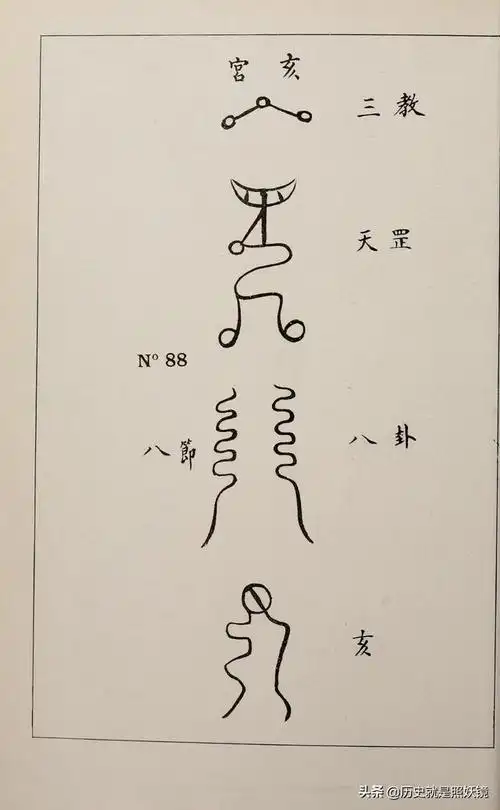 宮 亥
三 教
天 罡
N° 88
八 節
八 卦
亥
头条 @历史就是照妖镜